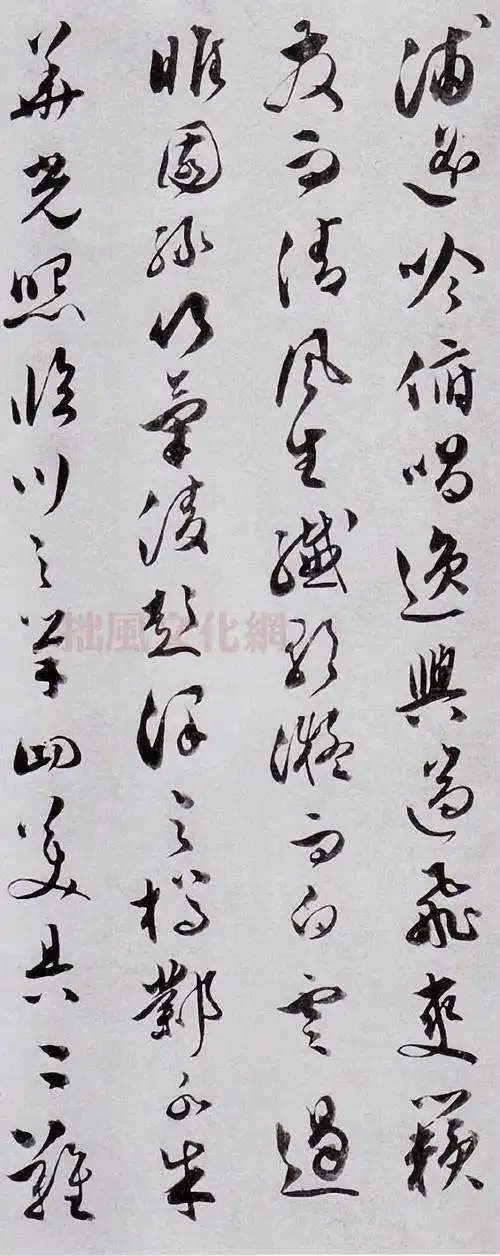 浦遙吟俯唱逸興遄飛爽籟
發而清風生纖歌凝而白雲遏
睢園綠竹氣凌彭澤之樽鄴水朱
華光照臨川之筆四美具二難
拙風文化網